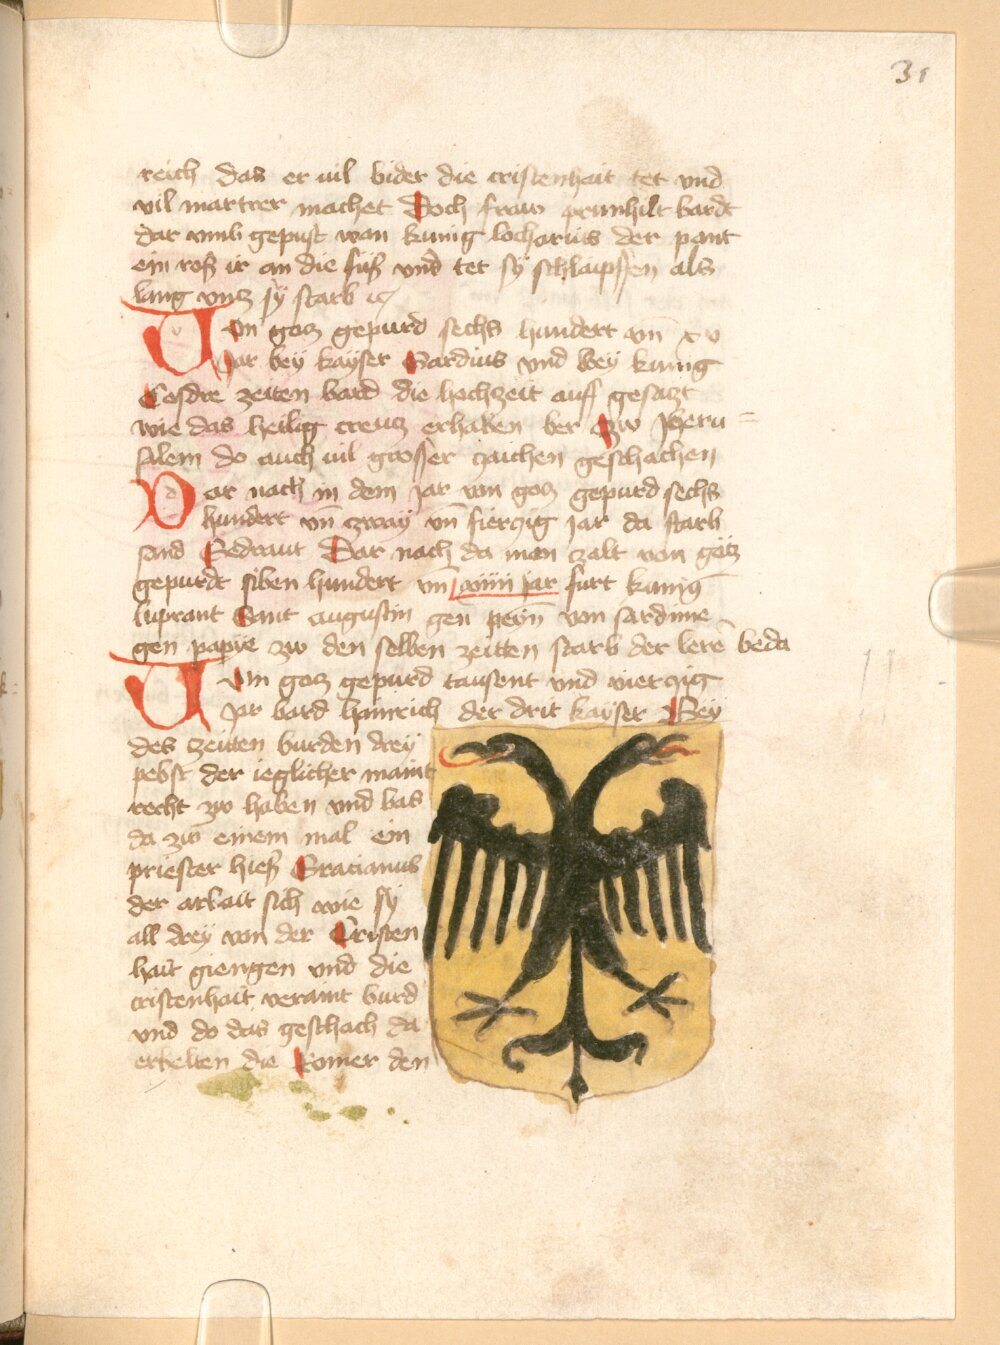 31
reich das er vil bider die cristenhait tet vnd
vil martrer machet Doch fraw prunhilt bardt
dar vmb gepust wan kunig locharius der pant
ein roß ir an die fuß vnd tet sy schlaipffen als
lang vntz sy starb
Von gotz gepurd sechs hundert vn̄ xv
Jar bey kayser Eardius vnd bey kunig
Cosdre zeiten bard die hochzeit auff gesatzt
wie das heilig creutz erhaben ber Zw Jheru=
salem do auch vil grosser zaichen geschachen
Dar nach in dem jar von gotz gepurd sechs
hundert vn̄ zway vn̄ fierczig jar da starb
sand Gedraut Dar nach da man zalt von gotz
gepurdt siben hundert vn̄ xviiii jar furt kunig
luprant Sant augustin gen peyn von sardinie
gen papie zw den selben zeitten starb der lerē beda
Von gotz gepurd tausent vnd vierczig
Jar bard hainrich der drit kayser Bey
des zeitten burden drey
pebst der ieglicher maint
recht zw haben vnd bas
da zw einem mal ein
priester hieß Gracianus
der arbait sich wie sy
all drey von der Cristen
hait giengen vnd die
cristenhait veraint burd
vnd do das geschach da
erbelten die Romer den